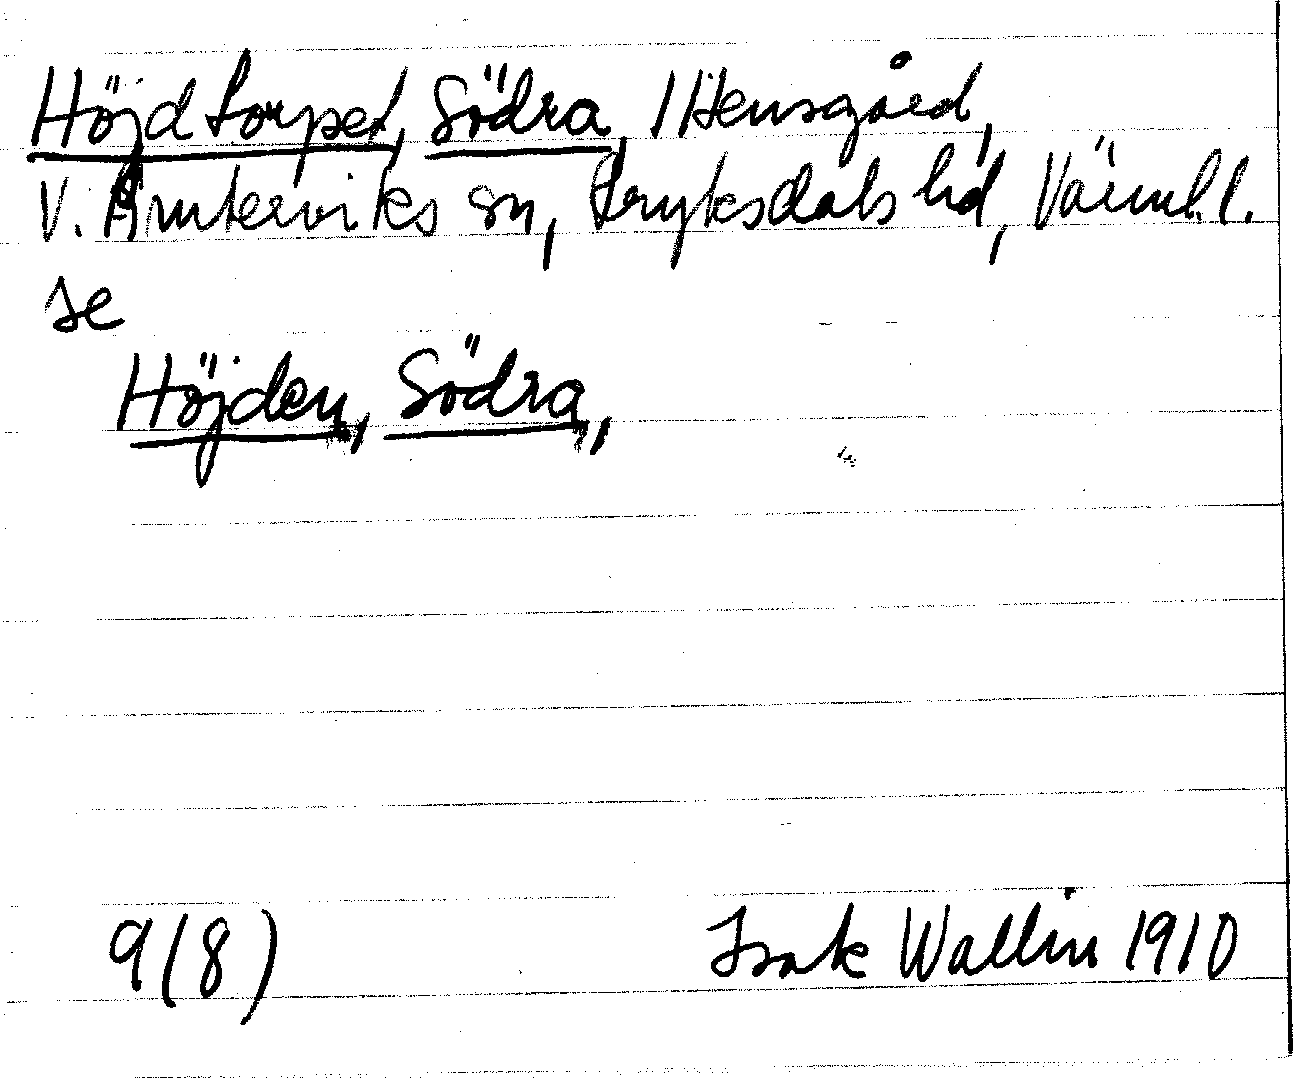 Höjdtorpet, Södra, 1 Hensgård,
V. Ämterviks sn, Fryksdals hd, Värml. l.
se
Höjden, Södra,
9(8) Isak Wallin 1910